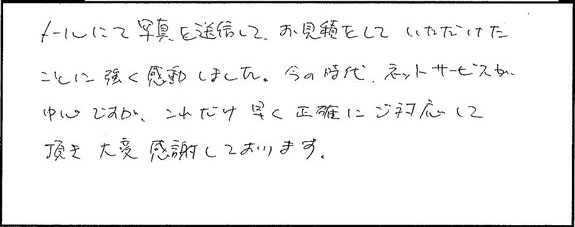 メールにて写真を送信して、お見積をして いただけた
ことに強く感動しました。今の時代、ネットサービスが
中心ですが、これだけ早く正確にご対応して
頂き大変感謝しております。